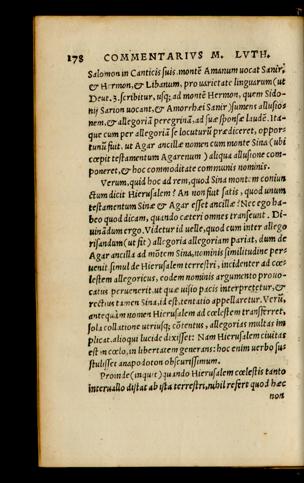 178 COMMENTARIVS M. LVTH.
Salomon in Canticis suis. montē Amanum uocat Sanir,
& Hermon, & Libanum. pro uarietate linguarum (ut
Deut. 3. scribitur. usq; ad montē Hermon, quem Sido-
nij Sarion uocant, & Amorrhæi Sanir) sumens allusio
nem, & allegoriā peregrinā, ad suæ sponsæ laudē. Ita-
que cum per allegoriā se locuturū prædiceret, oppor-
tunū fuit. ut Agar ancillæ nomen cum monte Sina (ubi
cœpit testamentum Agarenum) aliqua allusione com-
poneret, & hoc commoditate communis nominis.
Verum, quid hoc ad rem, quod Sina montem coniun
ctum dicit Hierusalem? An non fuit satis, quod unum
testamentum Sinæ & Agar esset ancillæ? Nec ego ha-
beo quod dicam, quando cæteri omnes transeunt. Di-
uinādum ergo. Videtur id uelle, quod cum inter allego
risandum (ut fit) allegoria allegoriam pariat, dum de
Agar ancilla ad mōtem Sina, nominis similitudine per-
uenit simul de Hierusalem terrestri, incidenter ad cœ-
lestem allegoricus, eodem nominis argumento prouo-
catus peruenerit. ut quæ uisio pacis interpretetur, &
rectius tamen Sina, id est, tentatio appellaretur. Verū,
anteq̄ā m nomen Hierusalem ad cœlestem transferret,
sola collatione utriusq; cōtentus, allegorias multas im
plicat. alioqui lucide dixisset: Nam Hierusalem ciuitas
est in cœlo, in libertatem generans: hoc enim uerbo su-
stulisset anapodoton obscurissimum.
Proinde (inquit) quando Hierusalem cœlestis tanto
interuallo distat ab ista terrestri, nihil refert quod hæc
non